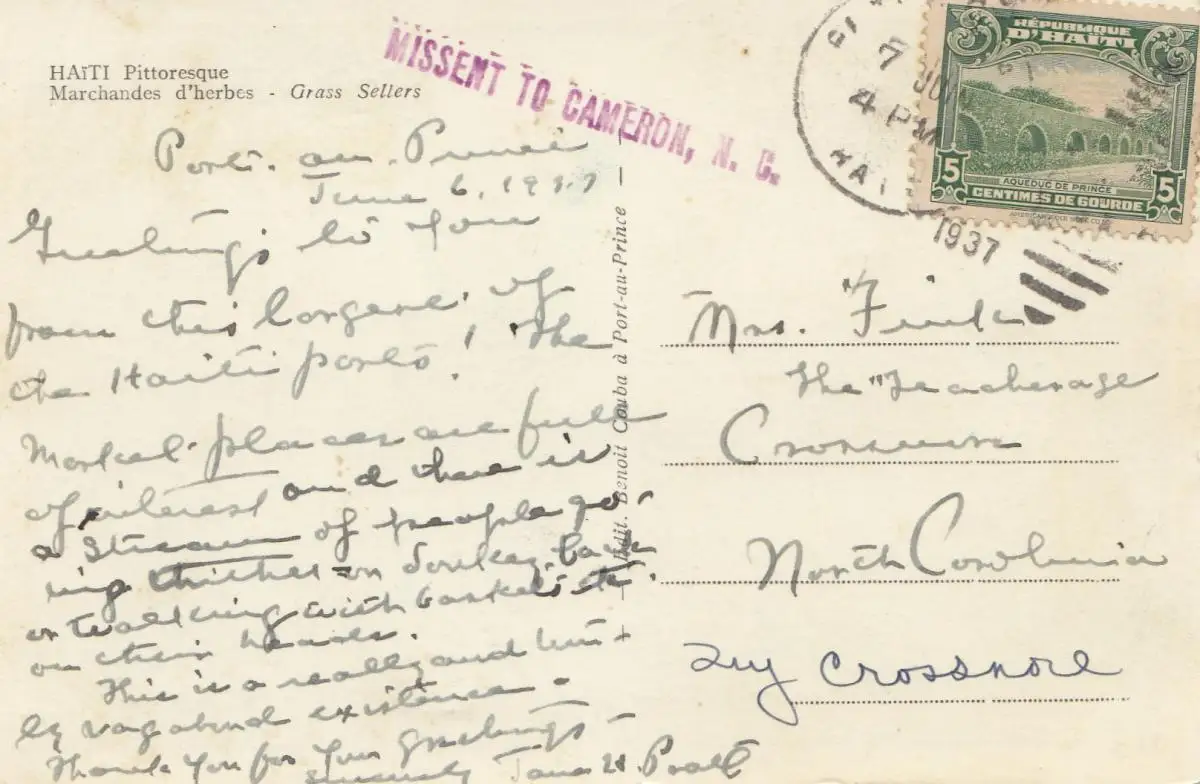 HAïTI Pittoresque
Marchandes d'herbes - Grass Sellers
MISSENT TO CAMERON, N. C.
7 JUN
4 PM
HAITI
1937
RÉPUBLIQUE
D'HAÏTI
5
5
AQUEDUC DE PRINCE
CENTIMES DE GOURDE
Port-au-Prince
June 6, 1937
Greetings to you
from this largest of
the Haiti ports! The
Market places are full
of interest and there is
a stream of people go-
ing thither on donkey back
or walking with baskets etc.
on their heads.
This is a really and
ly vagabond existence.
Thank you for your greetings -
Sincerely Jane H. Pratt
Edit. Benoit Couba à Port-au-Prince
Mrs. Fink
The "Teacherage
Crossnore
North Carolina
Try Crossnore